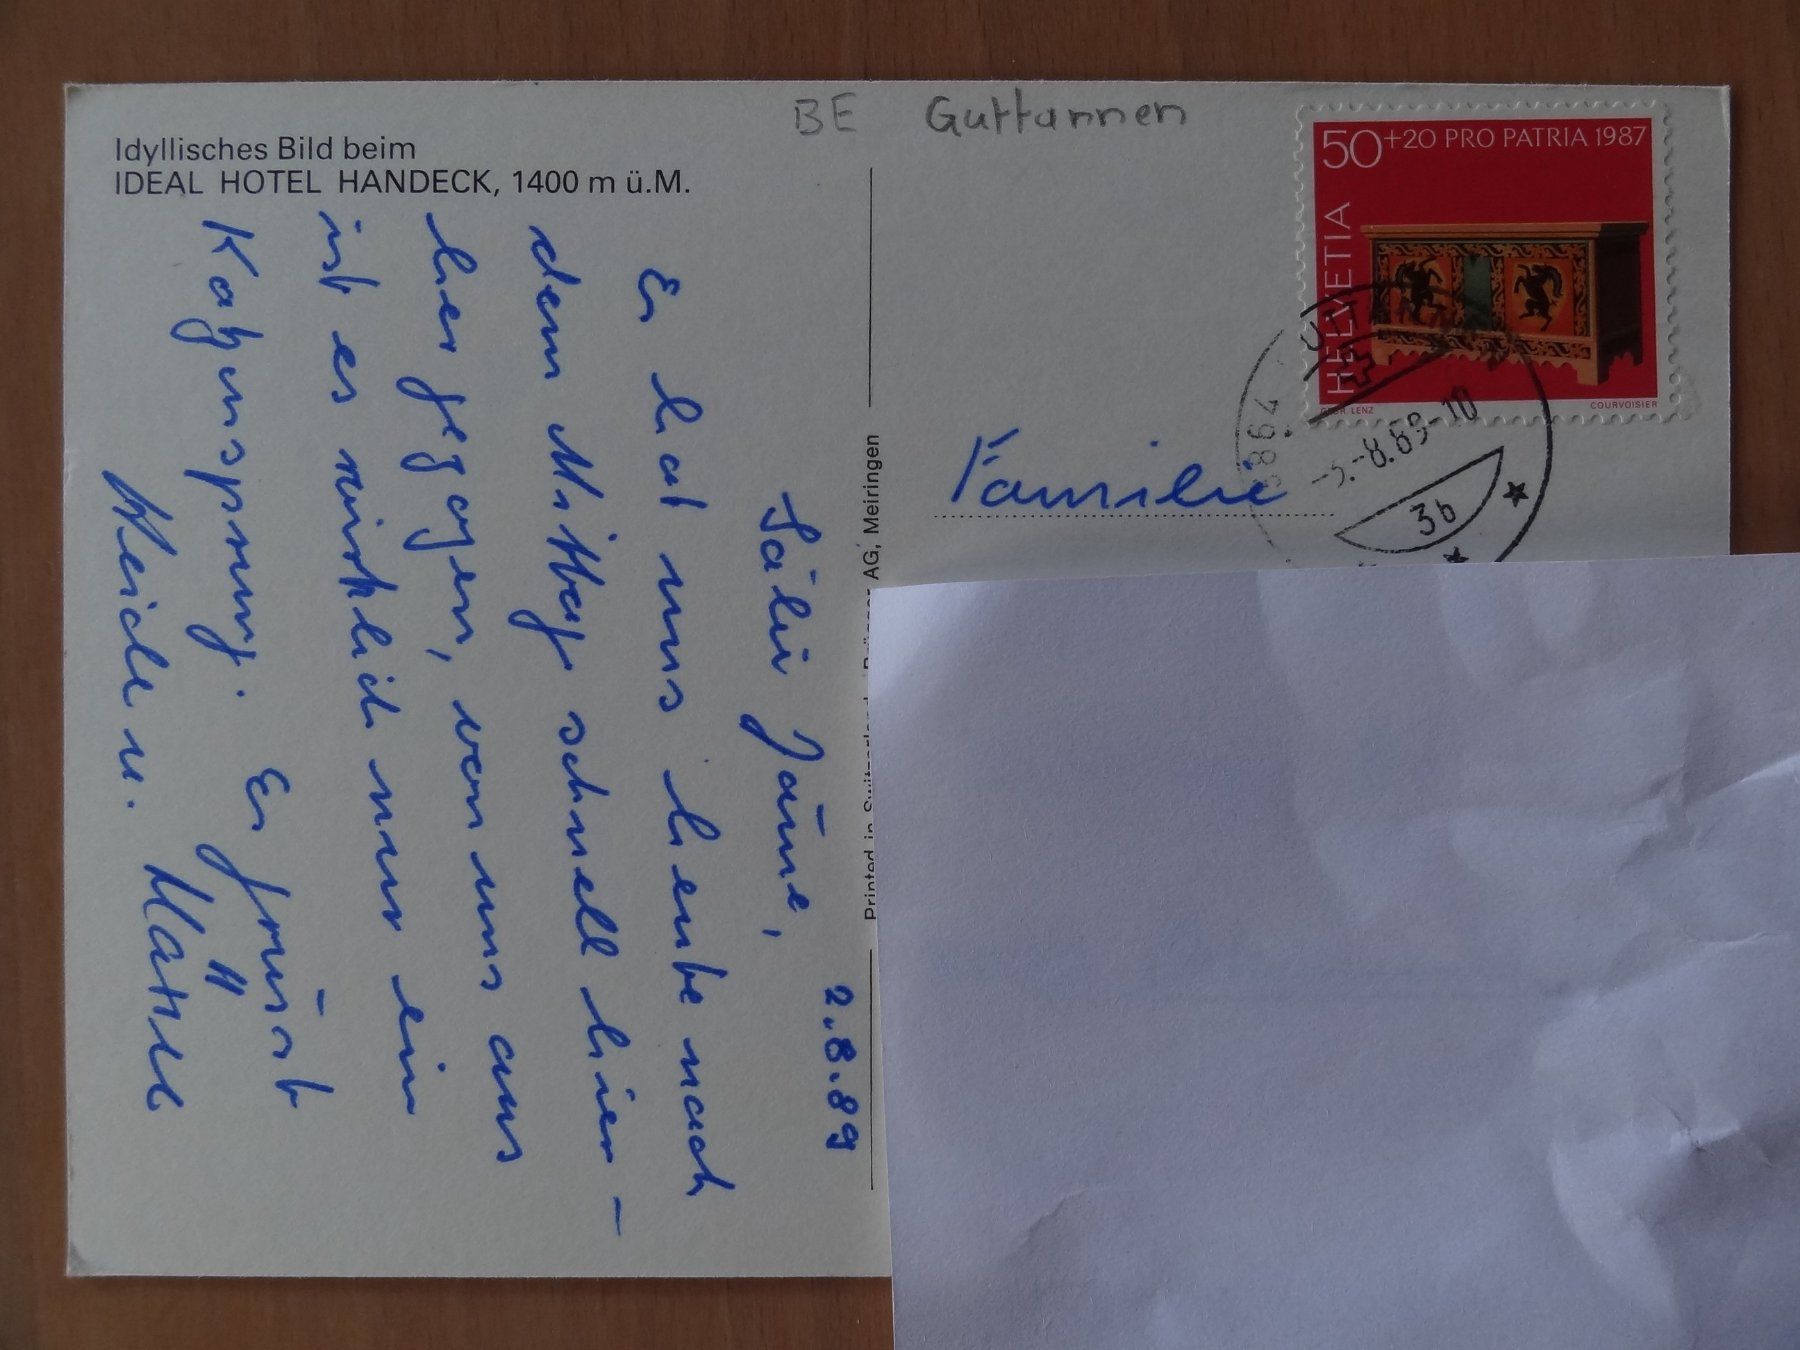 BE Guttannen
Idyllisches Bild beim
IDEAL HOTEL HANDECK, 1400 m ü.M.
50+20 PRO PATRIA 1987
HELVETIA
LENZ
COURVOISIER
3864
-3.-8.89-10
3b
Familie
Printed in Switzerland Brügger AG, Meiringen
2.8.89
Sälü Zäme,
Es hat uns heute nach
dem Mittag schnell hier-
her gezogen, von uns aus
ist es wirklich nur ein
Katzensprung. Es grüsst
u.